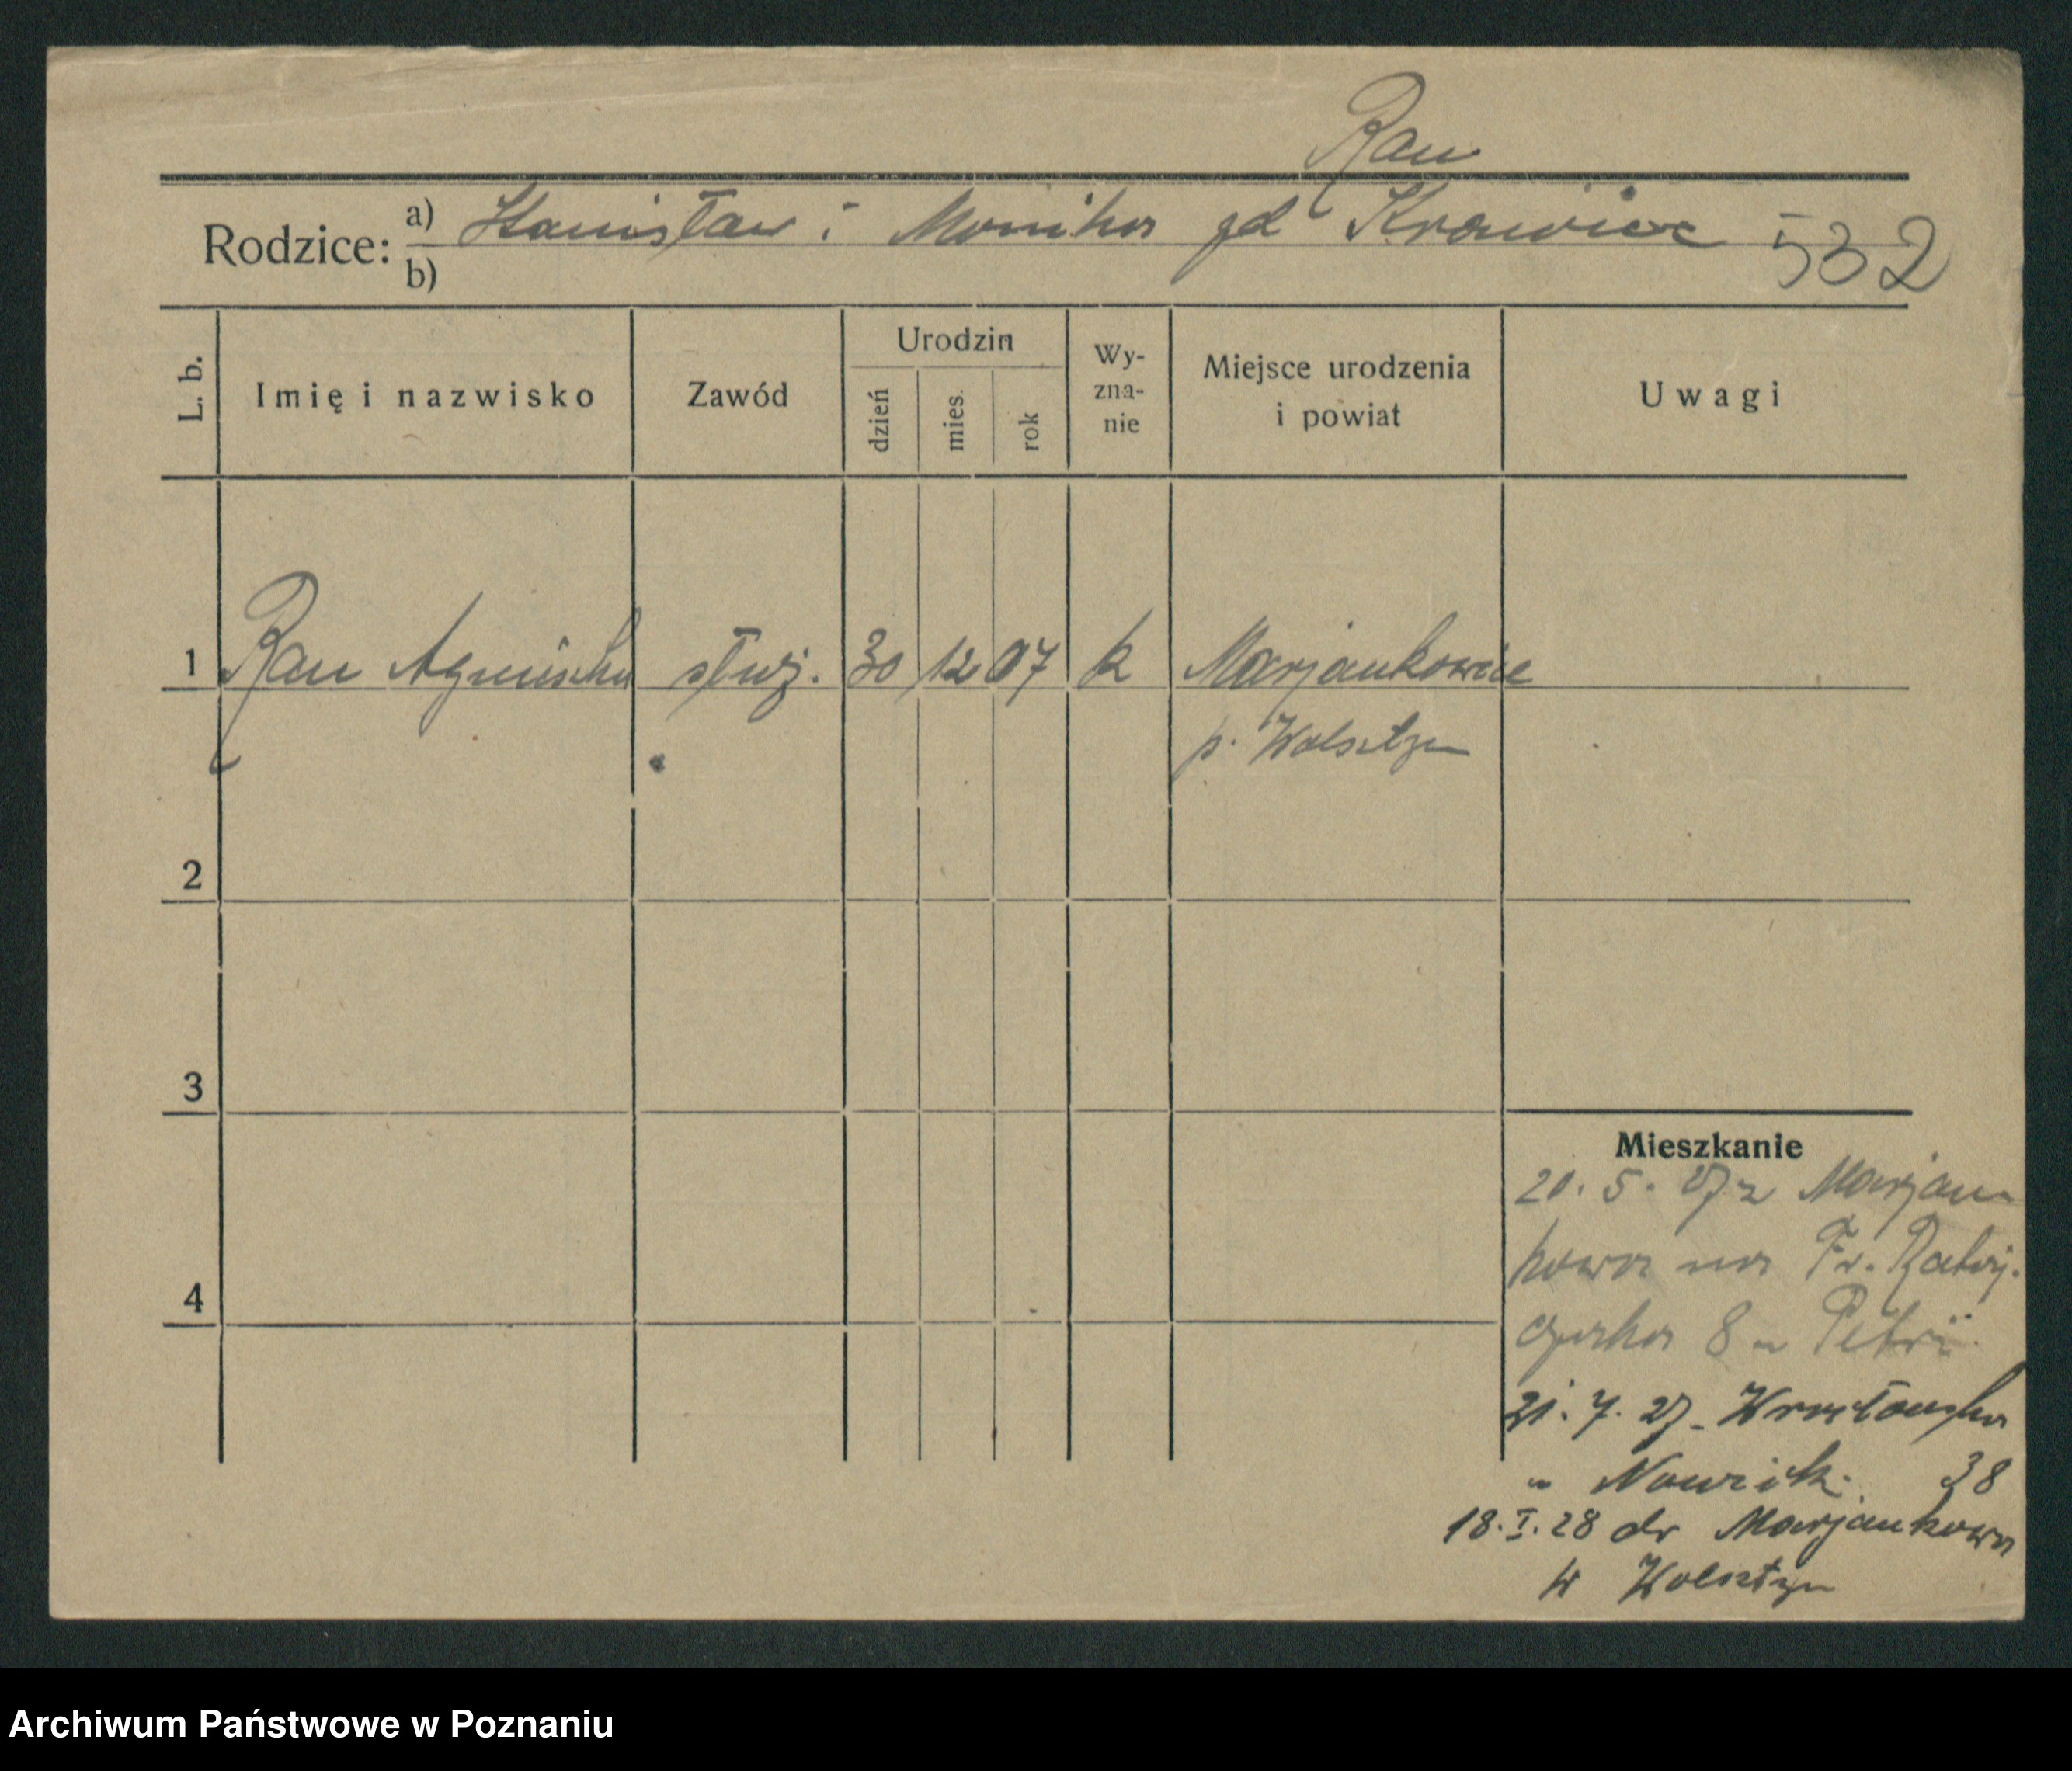 Rau
Rodzice: a) Stanisław i Monika zd Krawiec 532
b)
L. b. Imię i nazwisko Zawód Urodzin dzień mies. rok Wy-zna-nie Miejsce urodzenia i powiat Uwagi
1 Rau Agnieszka służ. 30 12 07 k Marjankowice
p. Wolsztyn
2
3
Mieszkanie
20. 5. 27 z Marjan-
kowa na Fr. Rataj-
czaka 8 u Petri
4
21. 7. 27 - Wrocławska
u Nowick. 38
18. I. 28 do Marjankowa
W Wolsztyn
Archiwum Państwowe w Poznaniu